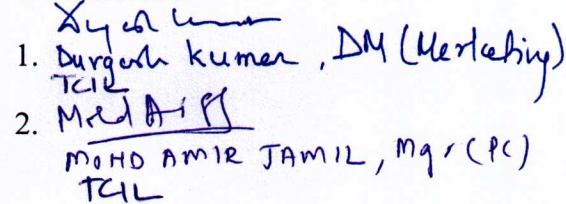 1. Durgesh Kumar, DM (Marketing)
TCIL
2.
MOHD AMIR JAMIL, Mgr (PC)
TCIL